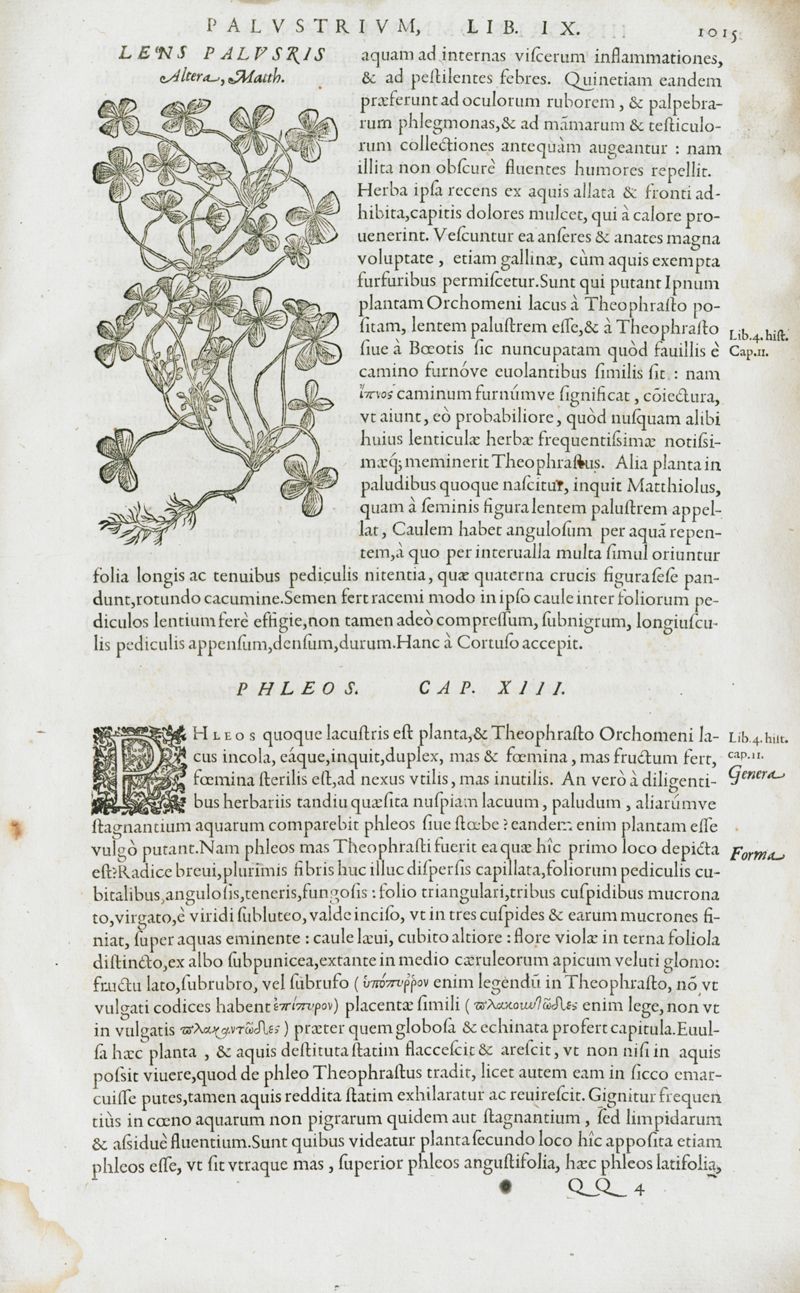 PALVSTRIVM, LIB. IX. 1015
LENS PALVSTRIS
Altera, Matth.
aquam ad internas viſcerum inflammationes,
& ad peſtilentes febres. Quinetiam eandem
præferunt ad oculorum ruborem, & palpebra-
rum phlegmonas,& ad mãmarum & teſticulo-
rum collectiones antequàm augeantur : nam
illita non obſcurè fluentes humores repellit.
Herba ipſa recens ex aquis allata & fronti ad-
hibita,capitis dolores mulcet, qui à calore pro-
uenerint. Veſcuntur ea anſeres & anates magna
voluptate , etiam gallinæ, cùm aquis exempta
furfuribus permiſcetur.Sunt qui putant Ipnum
plantam Orchomeni lacus à Theophraſto po-
ſitam, lentem paluſtrem eſſe,& à Theophraſto
ſiue à Bœotis ſic nuncupatam quòd fauillis è
camino furnóve euolantibus ſimilis ſit : nam
ἴπνος caminum furnúmve ſignificat, cõiectura,
vt aiunt, eò probabiliore, quòd nuſquam alibi
huius lenticulæ herbæ frequentiſsimæ notiſsi-
mæq́; meminerit Theophraſtus. Alia planta in
paludibus quoque naſcitur, inquit Matthiolus,
quam à ſeminis figura lentem paluſtrem appel-
lat, Caulem habet anguloſum per aquã repen-
tem,à quo per interualla multa ſimul oriuntur
Lib.4.hiſt.
Cap.11.
folia longis ac tenuibus pediculis nitentia, quæ quaterna crucis figura ſeſe pan-
dunt,rotundo cacumine.Semen fert racemi modo in ipſo caule inter foliorum pe-
diculos lentium ferè effigie,non tamen adeò compreſſum, ſubnigrum, longiuſcu-
lis pediculis appenſum,denſum,durum.Hanc à Cortuſo accepit.
PHLEOS. CAP. XIII.
PHLEOS quoque lacuſtris eſt planta,& Theophraſto Orchomeni la-
cus incola, eáque,inquit,duplex, mas & fœmina, mas fructum fert,
fœmina ſterilis eſt,ad nexus vtilis, mas inutilis. An verò à diligenti-
bus herbariis tandiu quæſita nuſpiam lacuum, paludum , aliarúmve
ſtagnantium aquarum comparebit phleos ſiue ſtœbe ? eandem enim plantam eſſe
vulgò putant.Nam phleos mas Theophraſti fuerit ea quæ hîc primo loco depicta
eſt:Radice breui,plurimis fibris huc illuc diſperſis capillata,foliorum pediculis cu-
bitalibus,anguloſis,teneris,fungoſis : folio triangulari,tribus cuſpidibus mucrona
to,virgato,è viridi ſubluteo, valde inciſo, vt in tres cuſpides & earum mucrones fi-
niat, ſuper aquas eminente : caule læui, cubito altiore : flore violæ in terna foliola
diſtincto,ex albo ſubpunicea,extante in medio cæruleorum apicum veluti glomo:
fructu lato,ſubrubro, vel ſubrufo ( ὑπόπυῤῥον enim legẽdũ in Theophraſto, nõ vt
vulgati codices habent ἐπίπυρον) placentæ ſimili ( enim lege, non vt
in vulgatis ) præter quem globoſa & echinata profert capitula.Euul-
ſa hæc planta , & aquis deſtituta ſtatim flacceſcit & areſcit, vt non niſi in aquis
poſsit viuere,quod de phleo Theophraſtus tradit, licet autem eam in ſicco emar-
cuiſſe putes,tamen aquis reddita ſtatim exhilaratur ac reuireſcit. Gignitur frequen
tiùs in cœno aquarum non pigrarum quidem aut ſtagnantium , ſed limpidarum
& aſsiduè fluentium.Sunt quibus videatur planta ſecundo loco hîc appoſita etiam
phleos eſſe, vt ſit vtraque mas, ſuperior phleos anguſtifolia, hæc phleos latifolia,
Lib.4.hiſt.
cap.11.
Genera
Forma
QQ 4